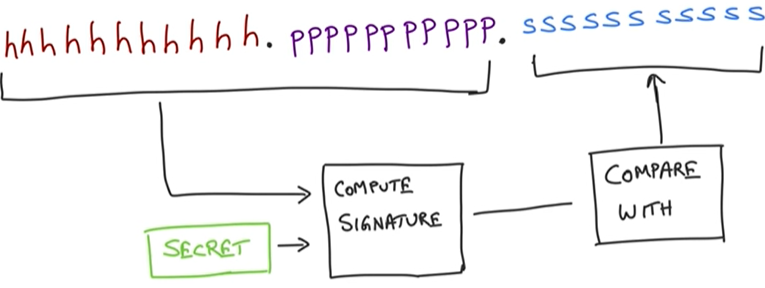 hhhhhhhhhhh. PPPPPPPPPPP. sssssssssss
COMPUTE
SIGNATURE
COMPARE
WITH
SECRET